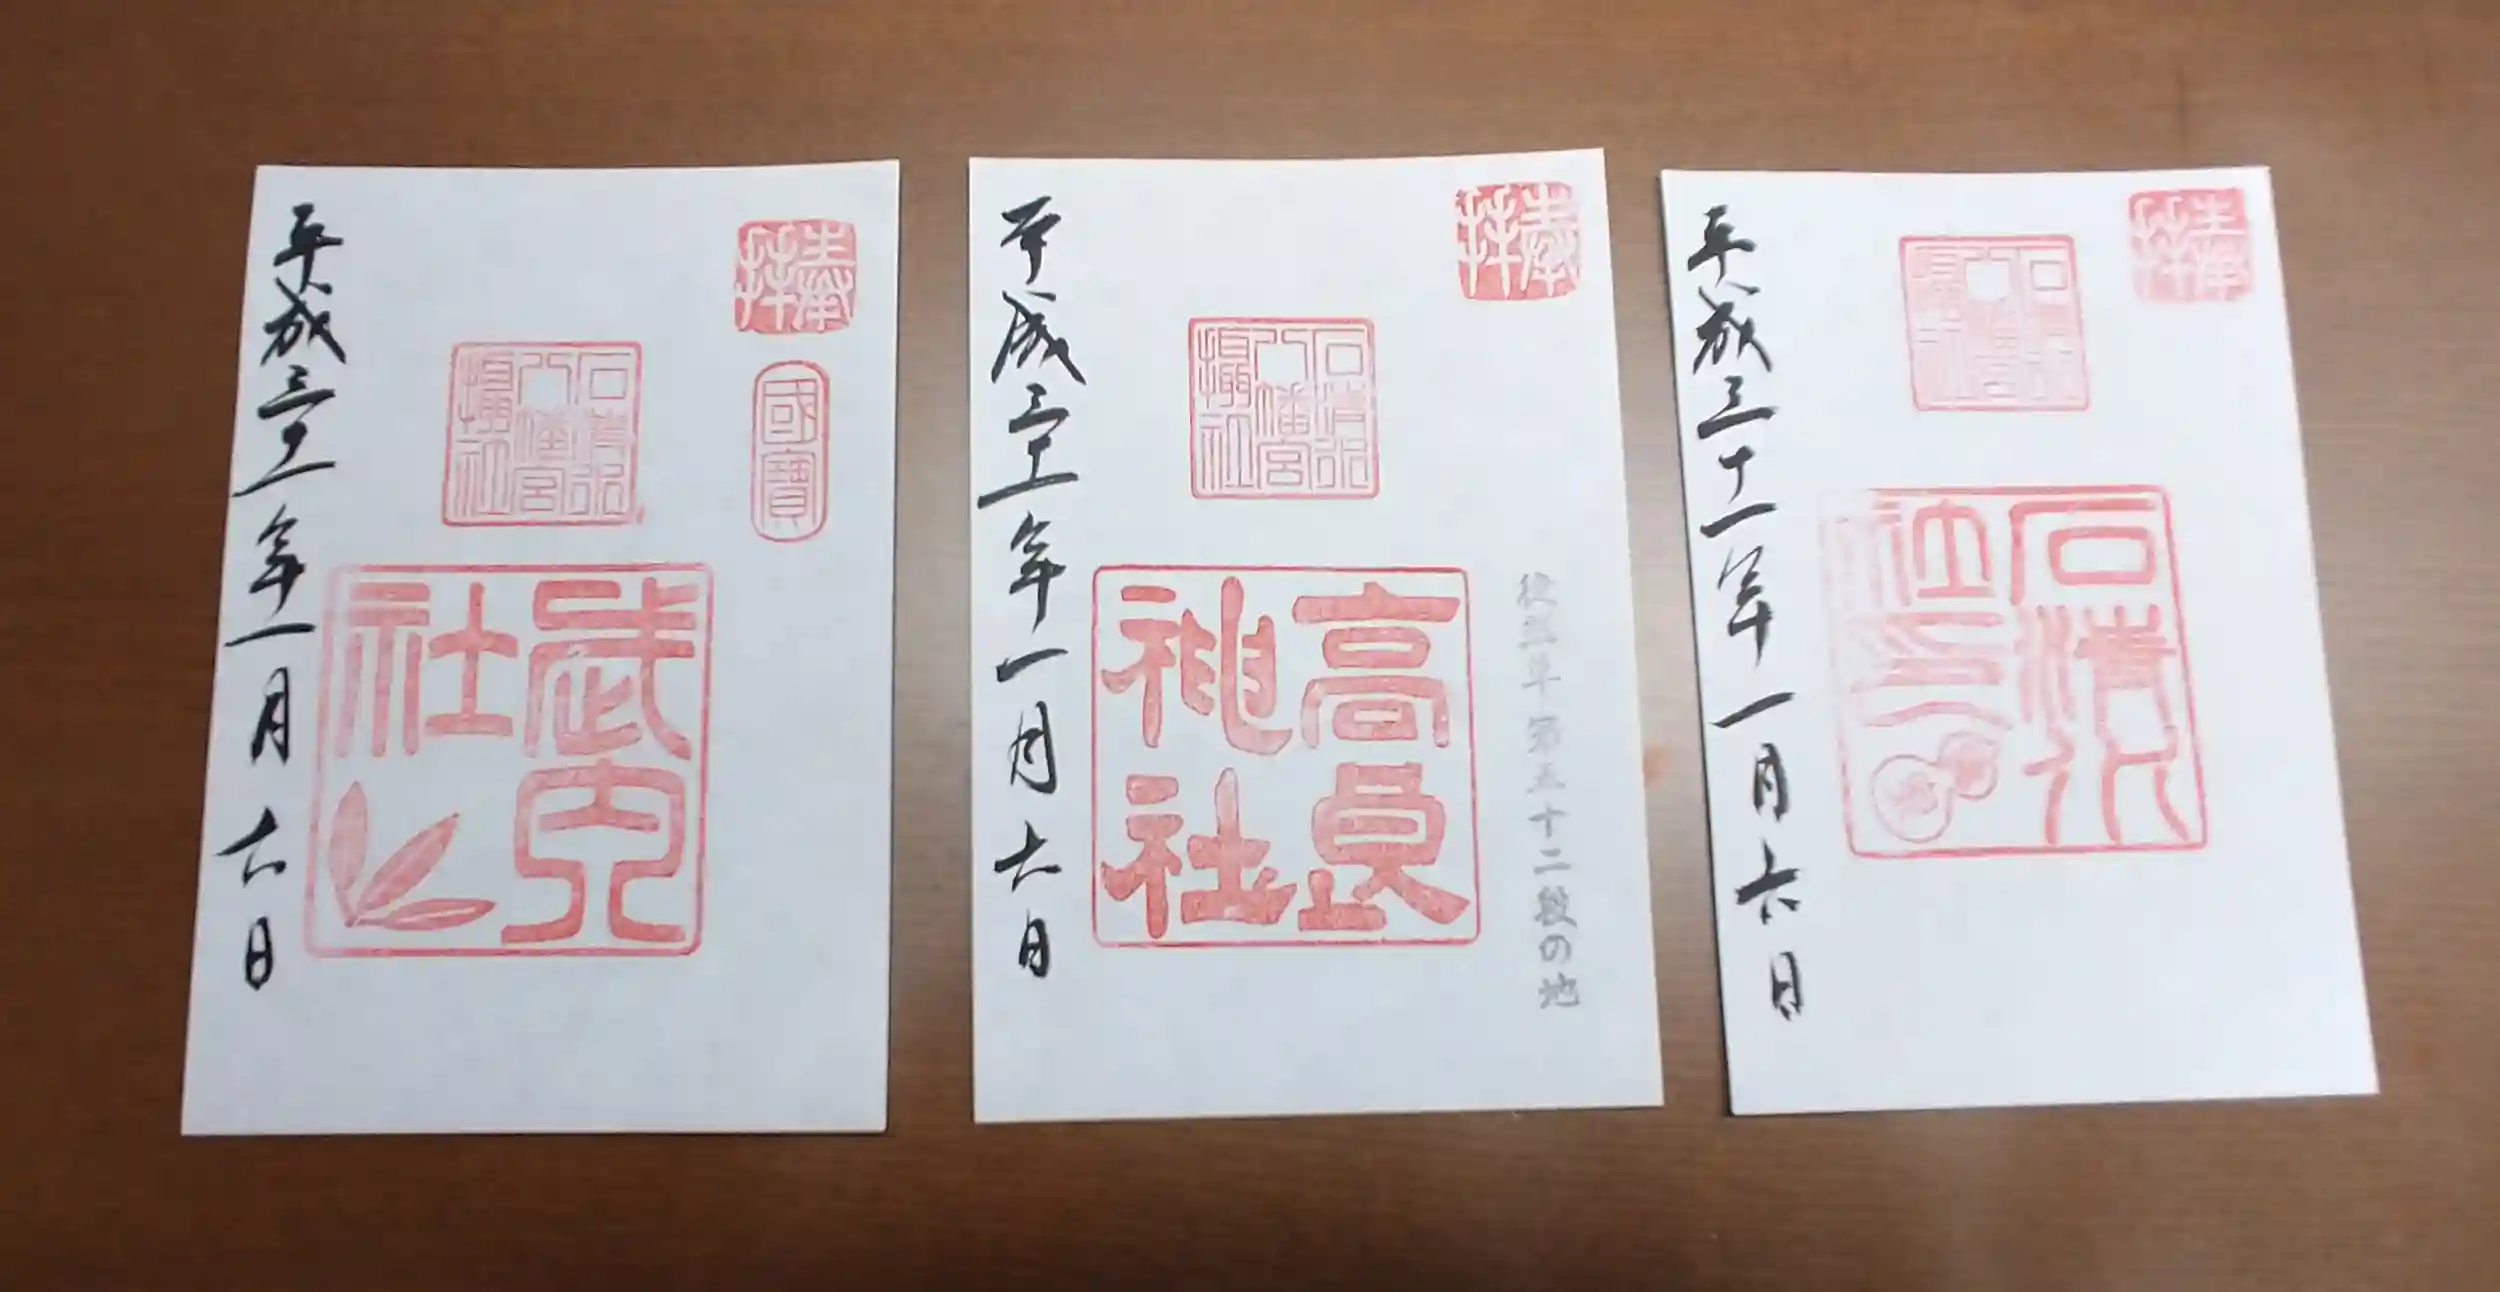 奉拝
國寶
石清水
八幡宮
攝社
武内
社
平成三十一年一月六日
奉拝
徒然草第五十二段の地
石清水
八幡宮
攝社
高良
神社
平成三十一年一月六日
奉拝
石清水
八幡宮
攝社
石清水
社
平成三十一年一月六日